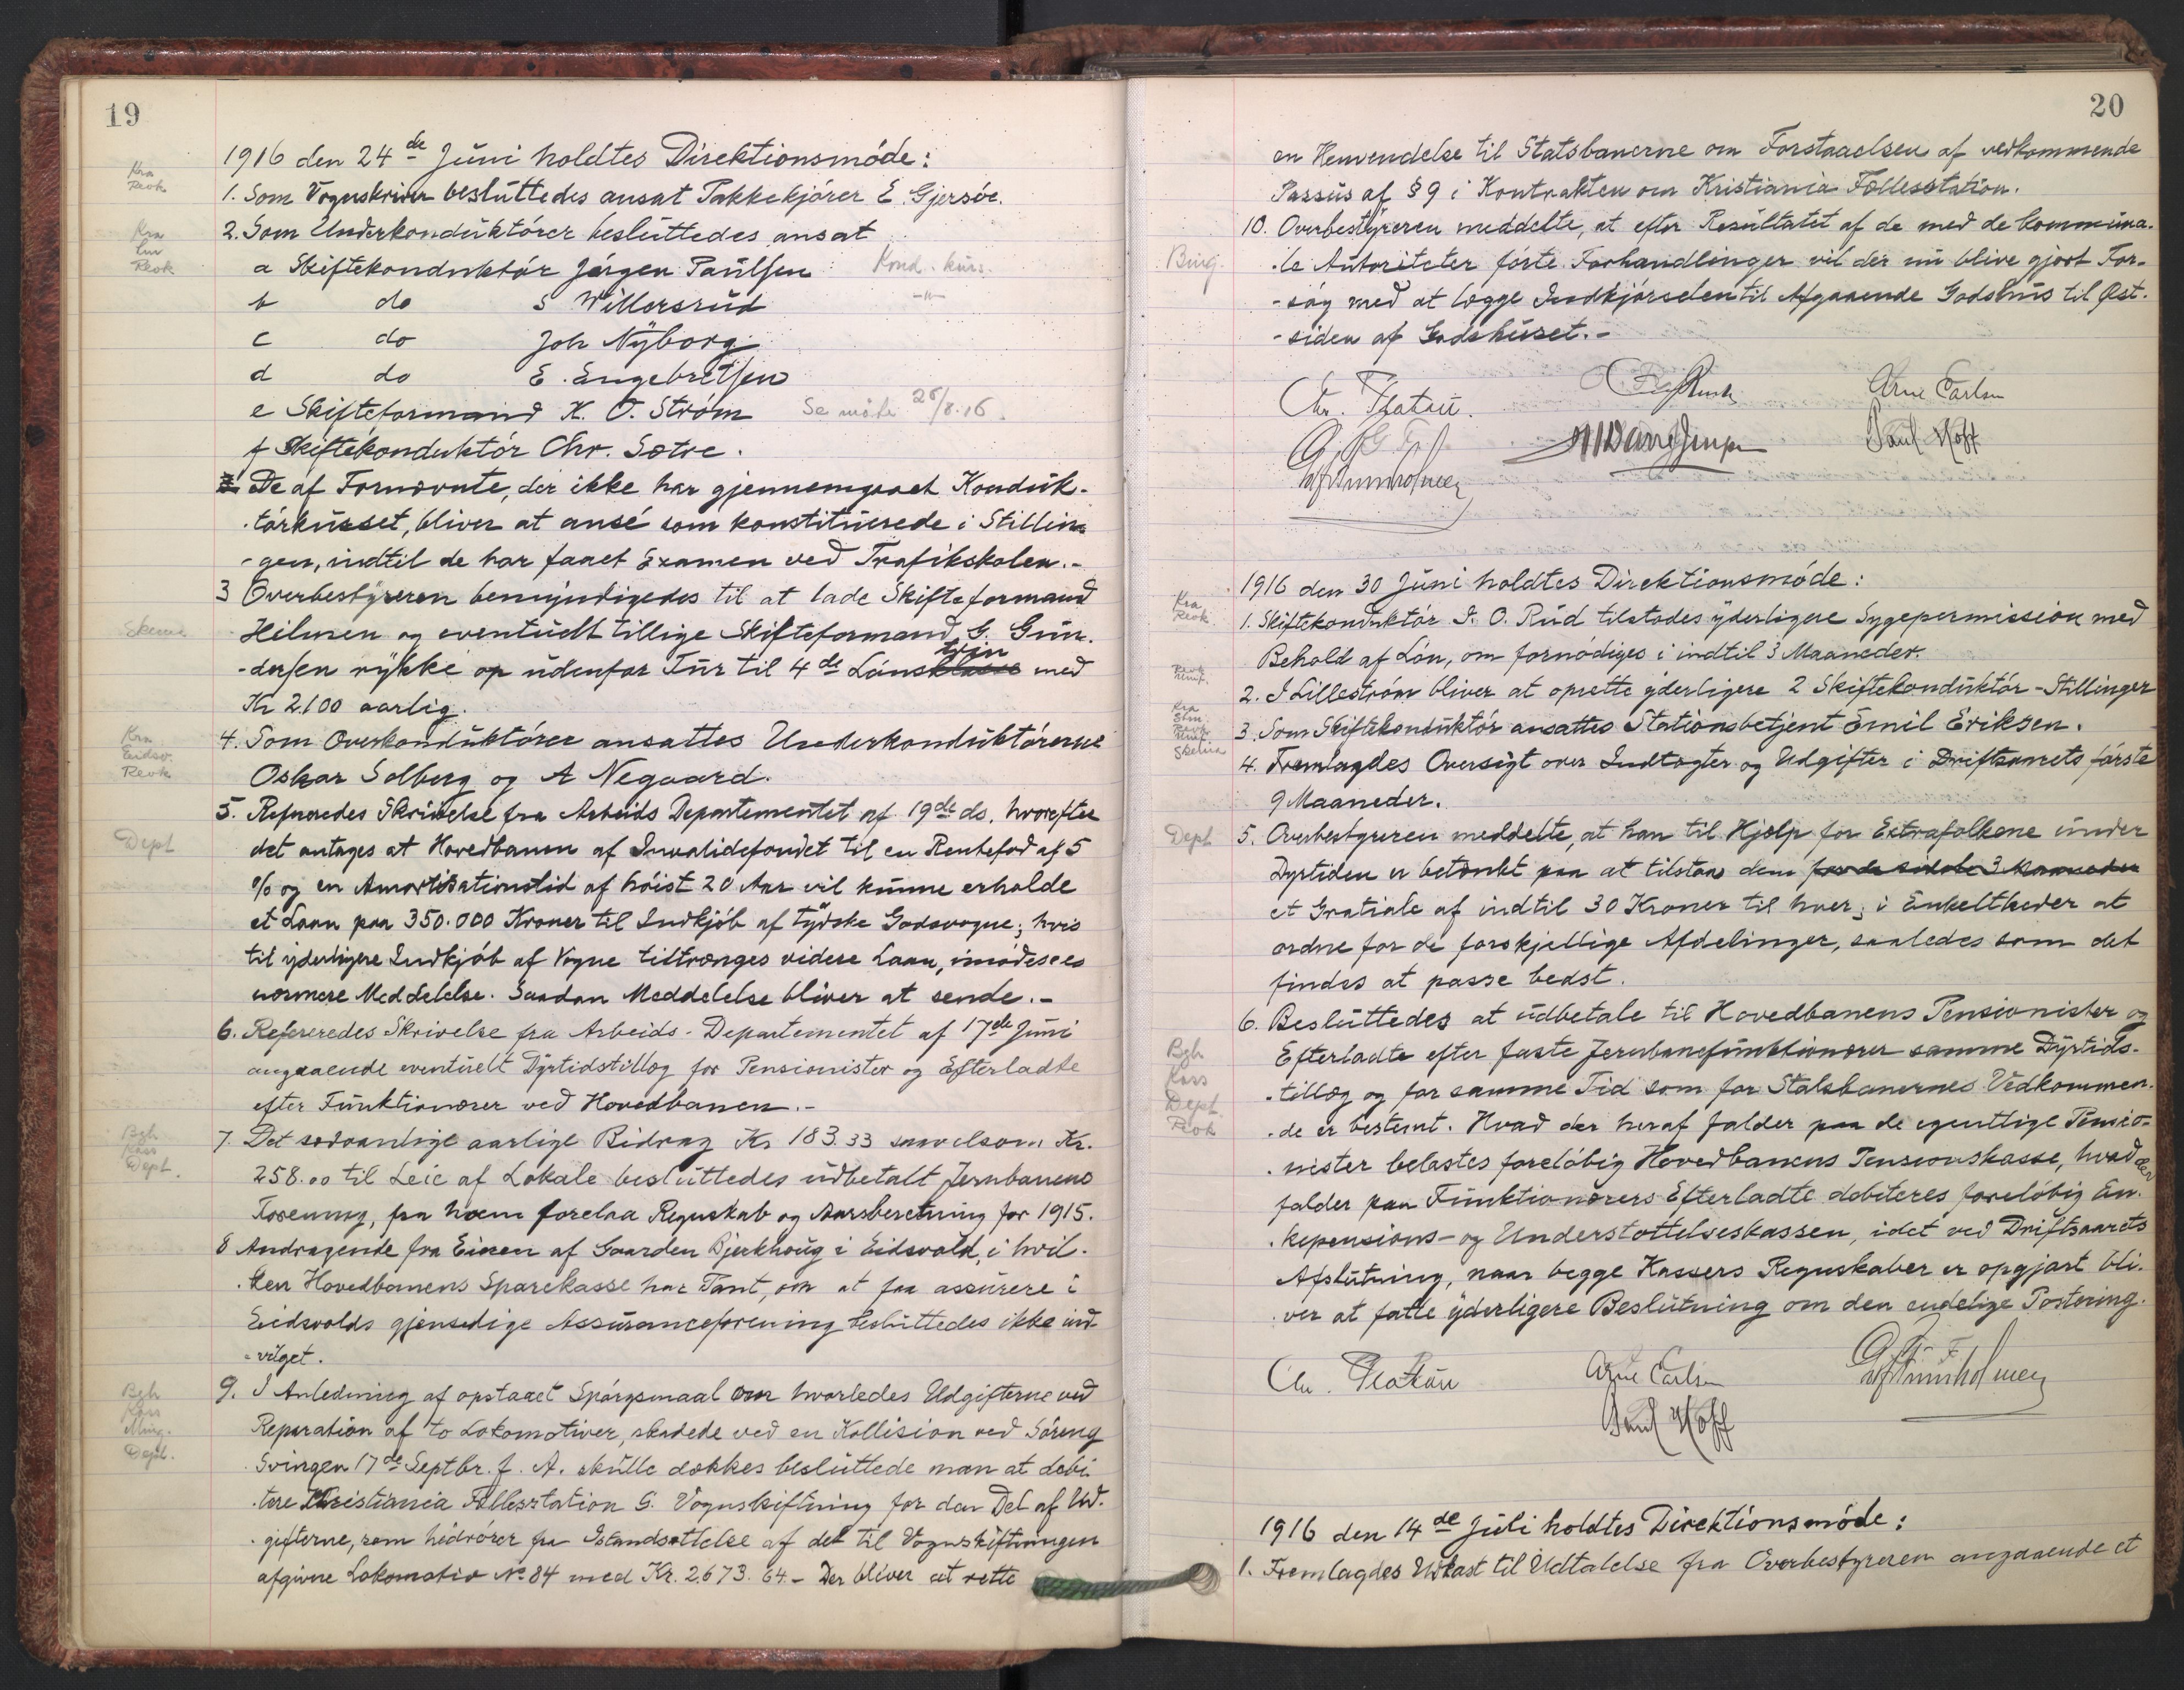 19
1916 den 24de Juni holdtes Direktionsmöde:
Kra
Revk
1. Som Vognskriver besluttedes ansat Pakkekjörer E. Gjersöe.
Kra
Revk
2. Som Underkonduktörer besluttedes ansat
a Skiftekonduktör Jörgen Paulsen Kond. kurs.
b do S Willersrud -"-
c do Joh Nyborg
d do E. Engebretsen
e Skifteformand K. O. Ström Se möte 26/8.16.
f Skiftekonduktör Chr. Sætre.
De af Fornævnte, der ikke har gjennemgaaet Konduk-
-törkurset, bliver at ansé som konstituerede i Stillin-
-gen, indtil de har faaet Examen ved Trafikskolen.-
3 Overbestyreren bemyndigedes til at lade Skifteformand
Skema
Hilmsen og eventuelt tillige Skifteformand G. Gun-
trin
-dersen rykke op udenfor Tur til 4de Lönsklasse med
Kr 2.100 aarlig.
Kra
Eidsv.
Revk
4. Som Overkonduktörer ansattes Underkonduktörerne
Oskar Solberg og A Negaard.
5. Refereredes Skrivelse fra Arbeids Departementet af 19de ds. hvorefter
Dept
det antages at Hovedbanen af Invalidefondet til en Rentefod af 5
% og en Amortisationstid af höist 20 Aar vil kunne erholde
et Laan paa 350.000 Kroner til Indkjöb af tydske Godsvogne; hvis
til yderligere Indkjöb af Vogne tiltrænges videre Laan, imödesees
nærmere Meddelelse. Saadan Meddelelse bliver at sende.-
6. Refereredes Skrivelse fra Arbeids-Departementet af 17de Juni
angaaende eventuelt Dyrtidstillæg for Pensionister og Efterladte
efter Funktionærer ved Hovedbanen.-
Bgh
Kass
Dept.
7. Det sædvanlige aarlige Bidrag Kr 183.33 saavelsom Kr.
258.00 til Leie af Lokale besluttedes udbetalt Jernbanens
Forening, fra hvem forelaa Regnskab og Aarsberetning for 1915.
8 Andragende fra Eieren af Gaarden Bjerkhoug i Eidsvold, i hvil-
-ken Hovedbanens Sparekasse har Pant, om at faa assurere i
Eidsvolds gjensidige Assuranceforening besluttedes ikke ind-
-vilget.
Bgh
Kass
Ming.
Dept.
9. I Anledning af opstaaet Spörgsmaal om hvorledes Udgifterne ved
Reparation af to Lokomotiver, skadede ved en Kollision ved Söreng
Svingen 17de Septbr. f. A. skulle dækkes besluttede man at debi-
-tere Kristiania Fællesstation G. Vognskiftning for den Del af Ud-
-gifterne, som hidrörer fra Istandsættelse af det til Vognskiftningen
afgivne Lokomotiv No 84 med Kr. 2.673.64.- Der bliver at rette
20
en Henvendelse til Statsbanerne om Forstaaelsen af vedkommende
Passus af § 9 i Kontrakten om Kristiania Fællesstation.
10. Overbestyreren meddelte, at efter Resultatet af de med de kommuna-
Bing.
-le Autoriteter förte Forhandlinger vil der nu blive gjort For-
-sög med at lægge Indkjörselen til Afgaaende Godshus til Øst-
-siden af Godshuset.-
Arne Carlsen
Paul Hoff
1916 den 30 Juni holdtes Direktionsmöde:
Kra
Revk.
1. Skiftekonduktör I. O. Rud tilstodes yderligere Sygepermission med
Behold af Lön, om fornödiges i indtil 3 Maaneder.
2. I Lilleström bliver at oprette yderligere 2 Skiftekonduktör-Stillinger
Kra
Skema
3. Som Skiftekonduktör ansattes Stationsbetjent Emil Eriksen.
4. Fremlagdes Oversigt over Indtægter og Udgifter i Driftsaarets förste
9 Maaneder.
Dept
5. Overbestyreren meddelte, at han til Hjælp for Extrafolkene under
Dyrtiden er betænkt paa at tilstaa dem for de sidste 3 Maaneder
et Gratiale af indtil 30 Kroner til hver; i Enkeltheder at
ordne for de forskjellige Afdelinger, saaledes som det
findes at passe bedst.
6. Besluttedes at udbetale til Hovedbanens Pensionister og
Bgh
Kass
Dept.
Revk
Efterladte efter faste Jernbanefunktionærer samme Dyrtids-
-tillæg og for samme Tid som for Statsbanernes Vedkommen-
-de er bestemt. Hvad der heraf falder paa de egentlige Pensio-
-nister belastes foreløbig Hovedbanens Pensionskasse, hvad der
falder paa Funktionærers Efterladte debiteres foreløbig En-
-kepensions- og Understøttelseskassen, idet ved Driftsaarets
Afslutning, naar begge Kassers Regnskaber er opgjort bli-
-ver at fatte yderligere Beslutning om den endelige Postering.
Arne Carlsen
Paul Hoff
1916 den 14de Juli holdtes Direktionsmöde:
1. Fremlagdes Udkast til Udtalelse fra Overbestyreren angaaende et